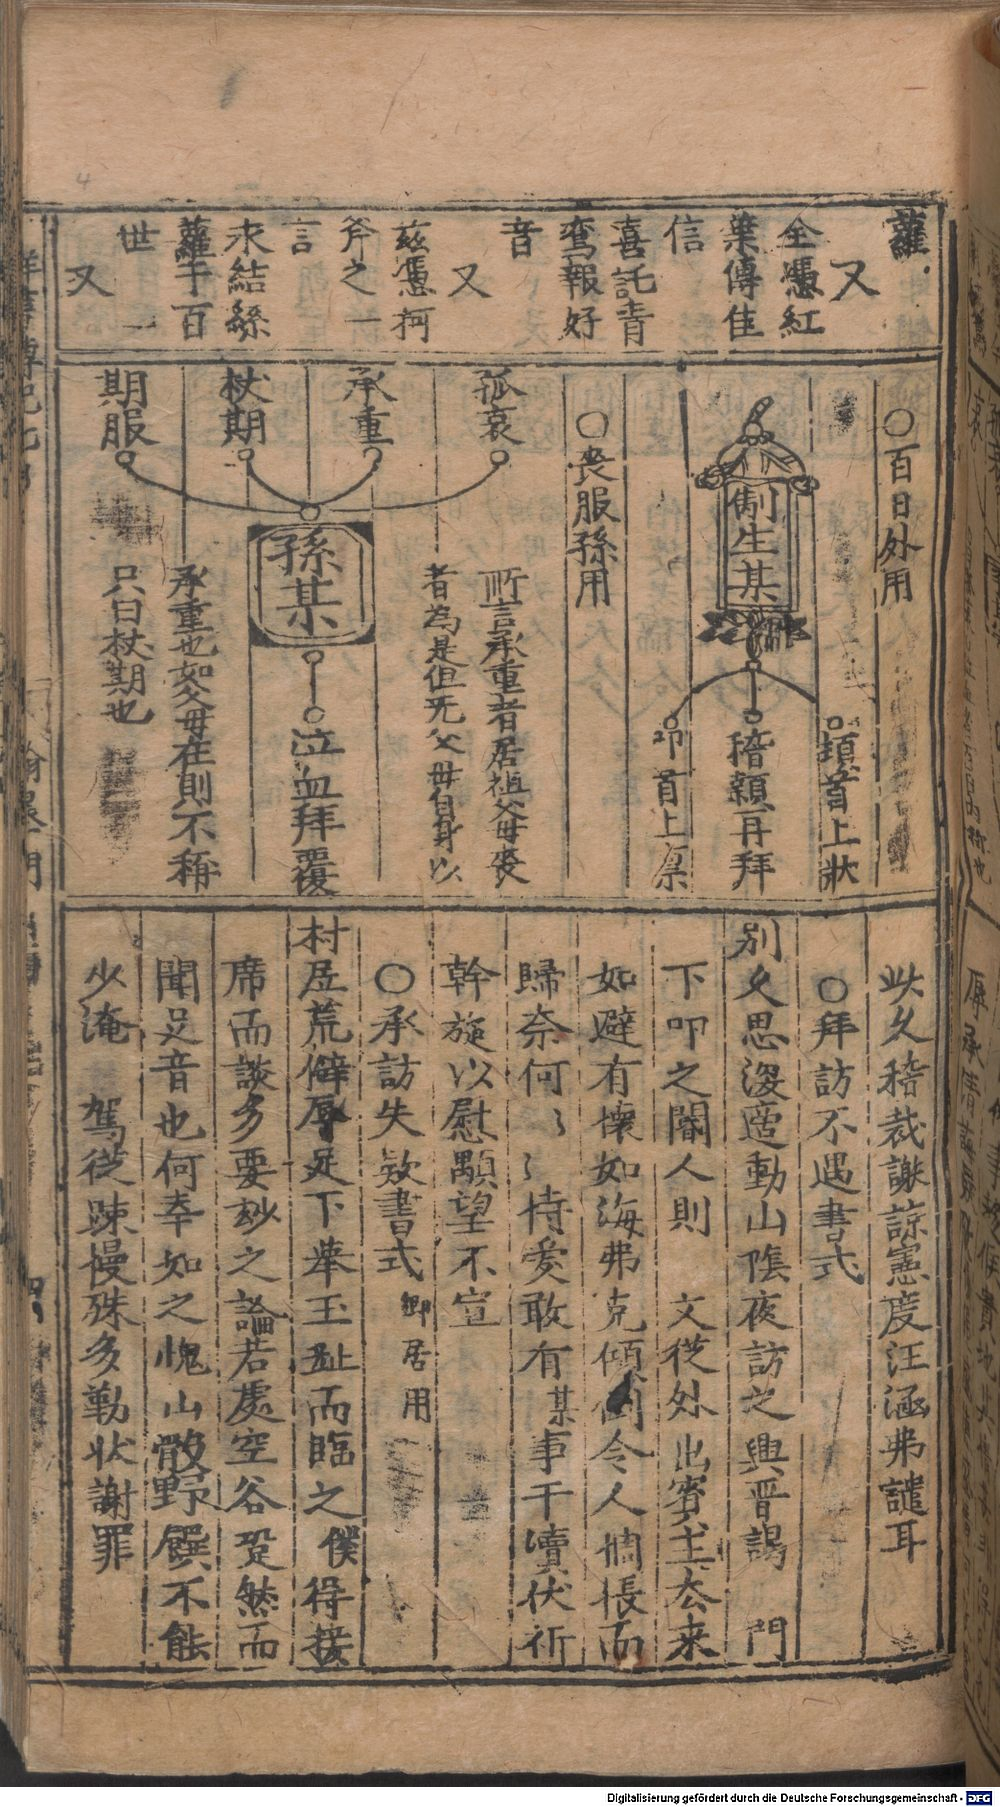 蘿
又
全憑紅
葉傳佳
信
喜託青
鸞報好
音
又
茲憑柯
斧之一
言
永結絲
蘿于百
世
又
○百日外用
制生某
頓首上狀
稽顙再拜
叩首上禀
○喪服孫用
孤哀
承重
杖期
期服
孫某
泣血拜覆
所言承重者居祖父母喪
者為是但无父母自身以
承重也如父母在則不稱
只曰杖期也
此久稽裁謝諒憲度汪涵弗譴耳
○拜訪不遇書式
別久思深適動山隂夜訪之興晋謁 門
下叩之閽人則 文從外出賓主太来
如避有懷如海弗克傾倒令人惆悵而
歸奈何〻〻恃爱敢有某事干瀆伏祈
幹旋以慰顒望不宣
○承訪失欵書式 鄉居用
村居荒僻辱足下举玉趾而臨之僕得接
席而談多要玅之論若處空谷跫然而
聞足音也何幸如之愧山殽野饌不能
少淹 駕從踈慢殊多勒状謝罪
Digitalisierung gefördert durch die Deutsche Forschungsgemeinschaft - DFG